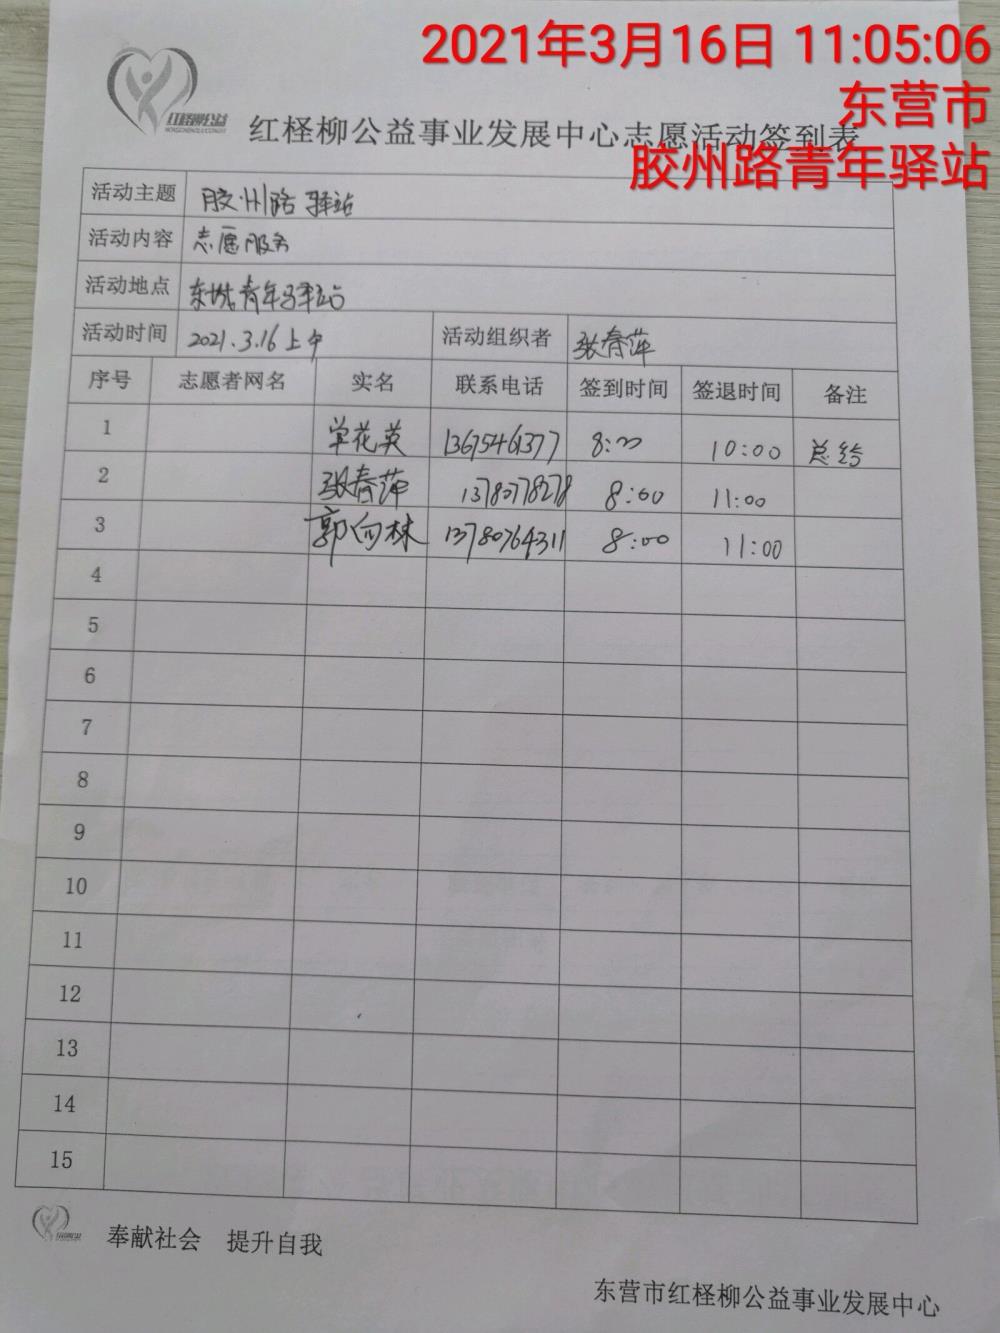 2021年3月16日 11:05:06
东营市
胶州路青年驿站
红柽柳公益
红柽柳公益事业发展中心志愿活动签到表
活动主题 胶州路驿站
活动内容 志愿服务
活动地点 东城青年驿站
活动时间 2021.3.16上午 活动组织者 张春萍
序号 志愿者网名 实名 联系电话 签到时间 签退时间 备注
1 单花英 13675461377 8:00 10:00 总结
2 张春萍 13780778278 8:00 11:00
3 郭向林 13780764311 8:00 11:00
4
5
6
7
8
9
10
11
12
13
14
15
奉献社会 提升自我
东营市红柽柳公益事业发展中心